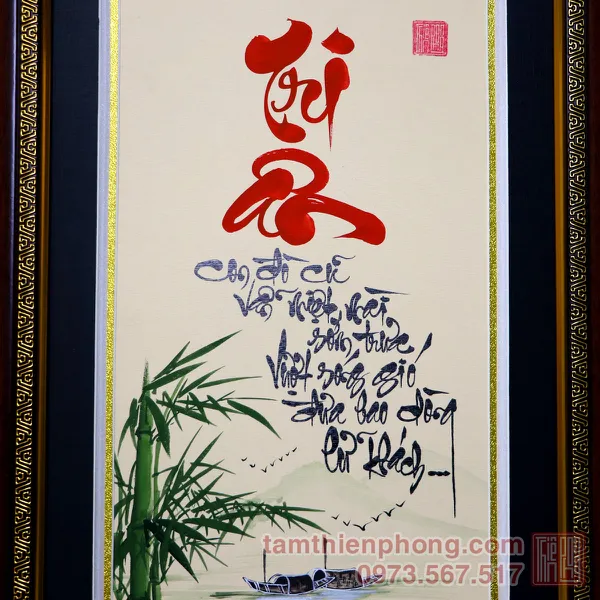 Tri
Ân
Con đò cũ
Vẫn miệt mài
sớm trưa
Vượt sóng gió
đưa bao dòng
lữ khách...
tamthienphong.com
0973.567.517